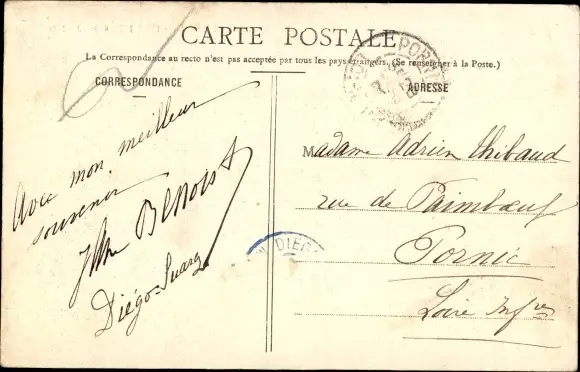 CARTE POSTALE
La Correspondance au recto n'est pas acceptée par tous les pays étrangers. (Se renseigner à la Poste.)
CORRESPONDANCE
Avec mon meilleur
souvenir
Benoist
Diégo-Suarez
ADRESSE
Madame Adrien Thibaud
rue de Paimbœuf
Pornic
Loire Infre
PORNIC
DIEG